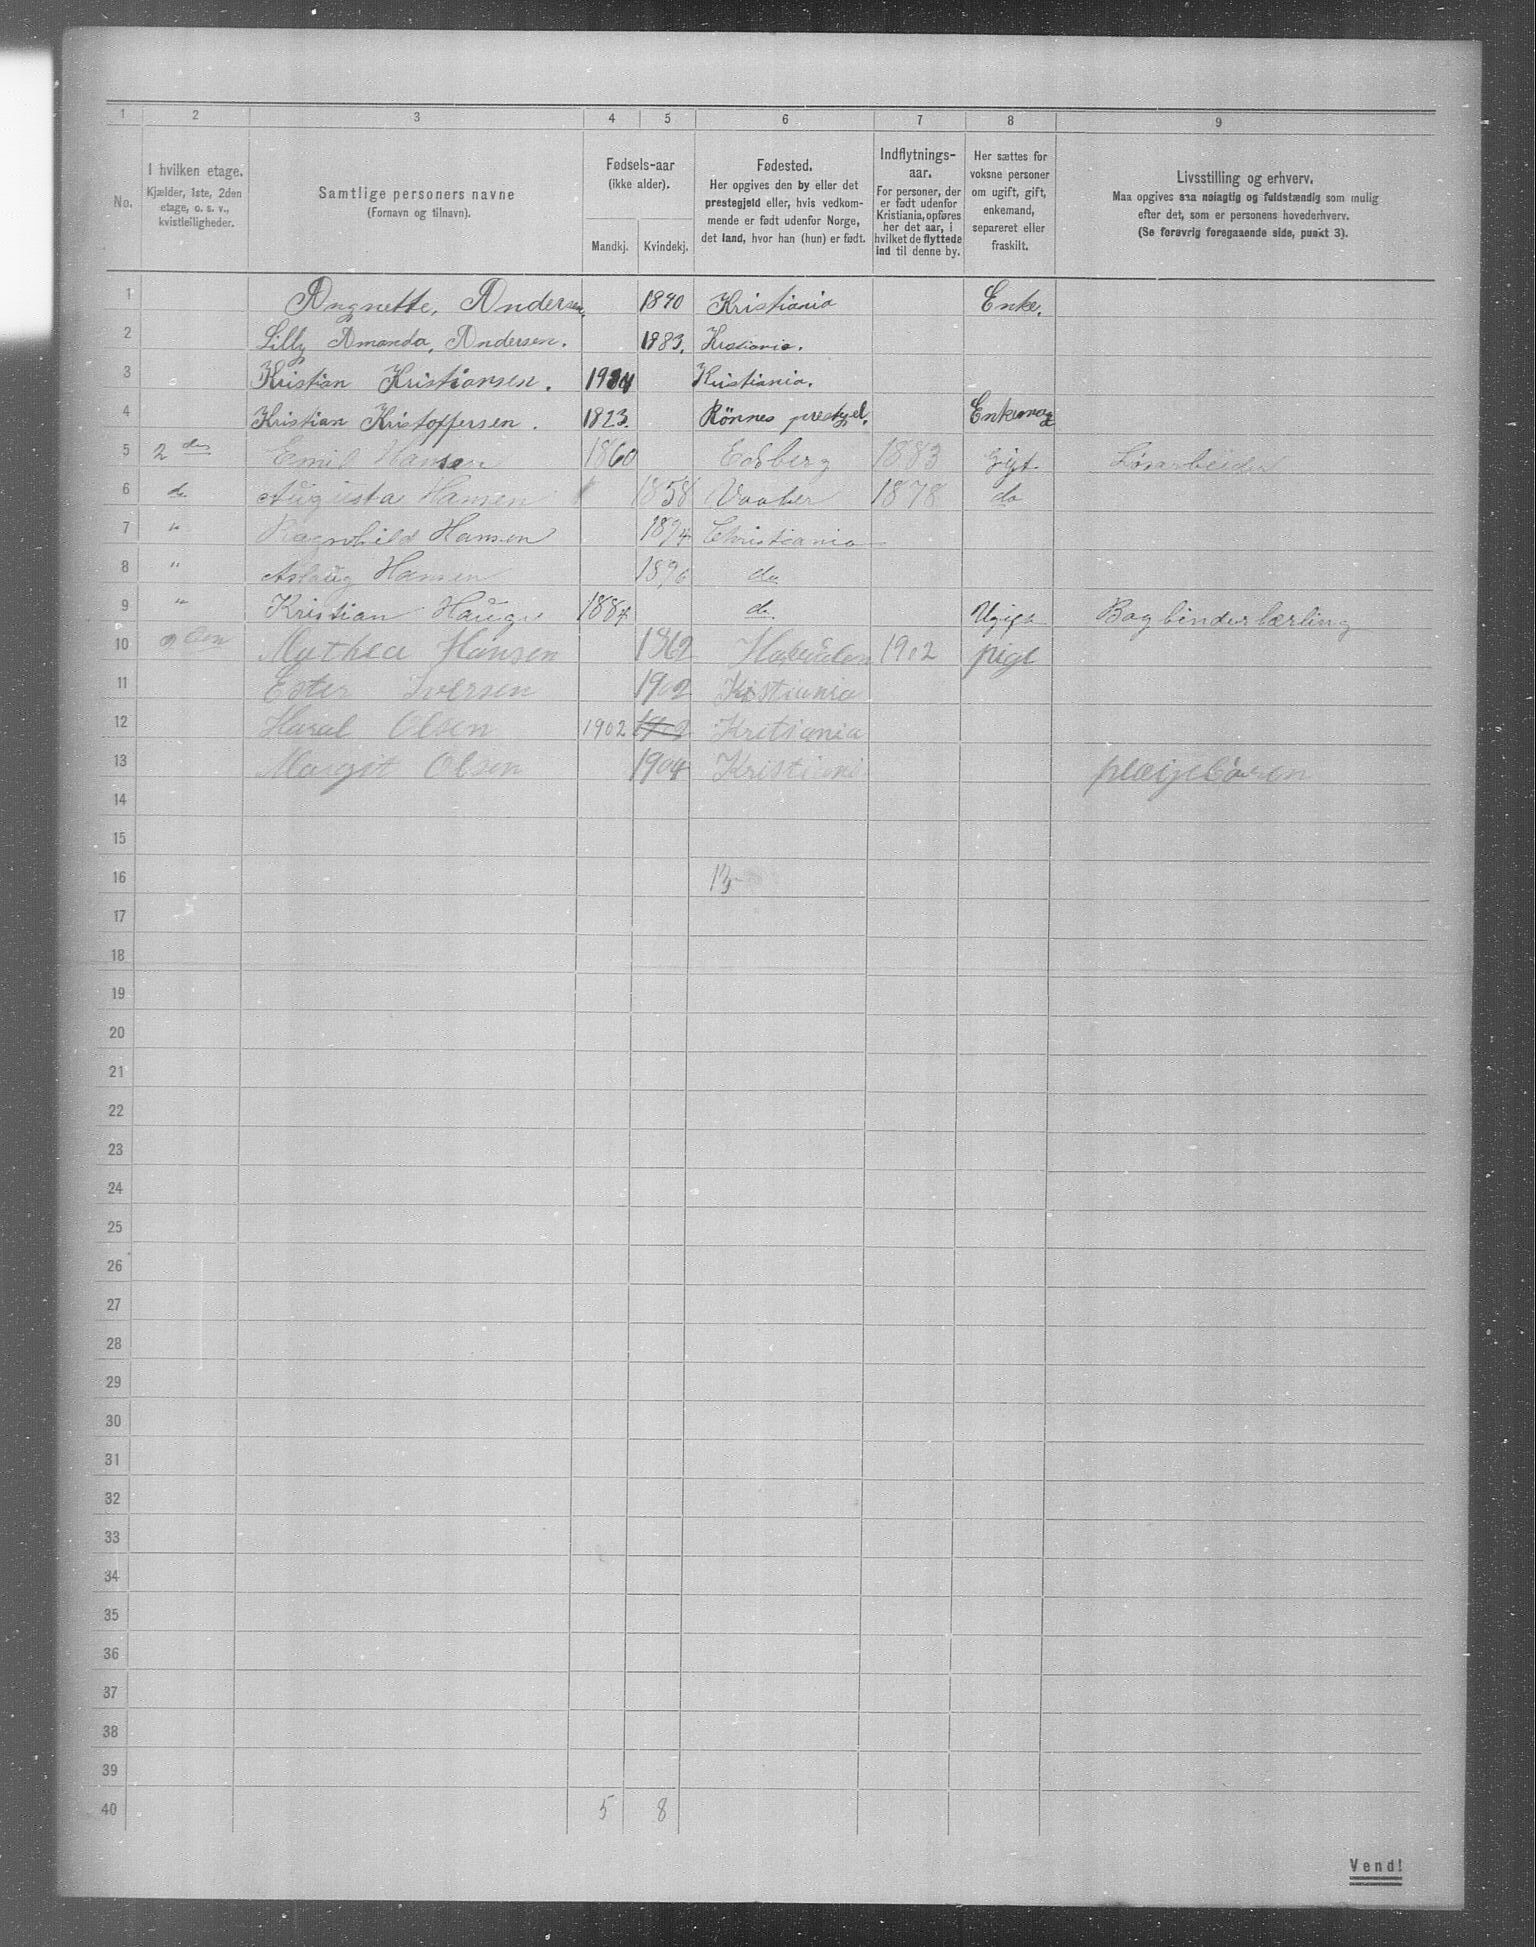 1 2 3 4 5 6 7 8 9
No.
I hvilken etage.
Kjælder, 1ste, 2den
etage, o. s. v.,
kvistleiligheder.
Samtlige personers navne
(Fornavn og tilnavn).
Fødsels-aar
(ikke alder).
Mandkj. Kvindekj.
Fødested.
Her opgives den by eller det
prestegjeld eller, hvis vedkom-
mende er født udenfor Norge,
det land, hvor han (hun) er født.
Indflytnings-
aar.
For personer, der
er født udenfor
Kristiania, opføres
her det aar, i
hvilket de flyttede
ind til denne by.
Her sættes for
voksne personer
om ugift, gift,
enkemand,
separeret eller
fraskilt.
Livsstilling og erhverv.
Maa opgives saa nøiagtig og fuldstændig som mulig
efter det, som er personens hovederhverv.
(Se forøvrig foregaaende side, punkt 3).
1 Angnette, Andersen. 1840 Kristiania Enke.
2 Lilly Amanda, Andersen. 1883. Kristiania.
3 Kristian Kristiansen. Kristiania.
4 Kristian Kristoffersen. 1823. Rönnes
5 2 den Emil Hansen 1860 1883 Gift
6 do Augusta Hansen 1858 Vaaler 1878 do
7 " Ragnhild Hansen 1894 Christiania
8 " Aslaug Hansen 1896 do
9 " Kristian Hauge 1884 do Bogbinderlærling
10 Mathea Hansen 1862 1902 pige
11 Ester Iversen 1902 Kistiania
12 Haral Olsen 1902 1902 Kritiania
13 Margit Olsen 1904 Kristiani
14
15
16 13
17
18
19
20
21
22
23
24
25
26
27
28
29
30
31
32
33
34
35
36
37
38
39
40 5 8
Vend!